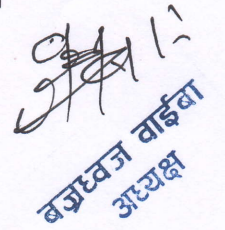 बज्रध्वज वाईबा
अध्यक्ष